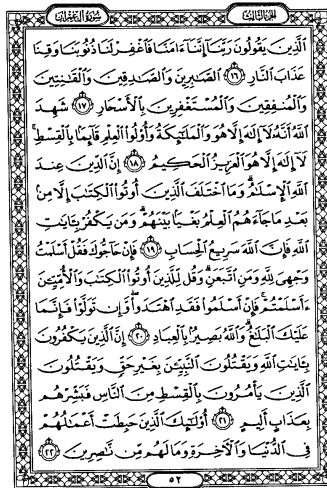 سورة آل عمران
الجزء الثالث
ٱلَّذِينَ يَقُولُونَ رَبَّنَآ إِنَّنَآ ءَامَنَّا فَٱغْفِرْ لَنَا ذُنُوبَنَا وَقِنَا
عَذَابَ ٱلنَّارِ ۝١٦ ٱلصَّٰبِرِينَ وَٱلصَّٰدِقِينَ وَٱلْقَٰنِتِينَ
وَٱلْمُنفِقِينَ وَٱلْمُسْتَغْفِرِينَ بِٱلْأَسْحَارِ ۝١٧ شَهِدَ
ٱللَّهُ أَنَّهُۥ لَآ إِلَٰهَ إِلَّا هُوَ وَٱلْمَلَٰٓئِكَةُ وَأُو۟لُوا۟ ٱلْعِلْمِ قَآئِمًۢا بِٱلْقِسْطِ ۚ
لَآ إِلَٰهَ إِلَّا هُوَ ٱلْعَزِيزُ ٱلْحَكِيمُ ۝١٨ إِنَّ ٱلدِّينَ عِندَ
ٱللَّهِ ٱلْإِسْلَٰمُ ۗ وَمَا ٱخْتَلَفَ ٱلَّذِينَ أُوتُوا۟ ٱلْكِتَٰبَ إِلَّا مِنۢ
بَعْدِ مَا جَآءَهُمُ ٱلْعِلْمُ بَغْيًۢا بَيْنَهُمْ ۗ وَمَن يَكْفُرْ بِـَٔايَٰتِ
ٱللَّهِ فَإِنَّ ٱللَّهَ سَرِيعُ ٱلْحِسَابِ ۝١٩ فَإِنْ حَآجُّوكَ فَقُلْ أَسْلَمْتُ
وَجْهِىَ لِلَّهِ وَمَنِ ٱتَّبَعَنِ ۗ وَقُل لِّلَّذِينَ أُوتُوا۟ ٱلْكِتَٰبَ وَٱلْأُمِّيِّۦنَ
ءَأَسْلَمْتُمْ ۚ فَإِنْ أَسْلَمُوا۟ فَقَدِ ٱهْتَدَوا۟ ۖ وَّإِن تَوَلَّوْا۟ فَإِنَّمَا
عَلَيْكَ ٱلْبَلَٰغُ ۗ وَٱللَّهُ بَصِيرٌۢ بِٱلْعِبَادِ ۝٢٠ إِنَّ ٱلَّذِينَ يَكْفُرُونَ
بِـَٔايَٰتِ ٱللَّهِ وَيَقْتُلُونَ ٱلنَّبِيِّۦنَ بِغَيْرِ حَقٍّ وَيَقْتُلُونَ
ٱلَّذِينَ يَأْمُرُونَ بِٱلْقِسْطِ مِنَ ٱلنَّاسِ فَبَشِّرْهُم
بِعَذَابٍ أَلِيمٍ ۝٢١ أُو۟لَٰٓئِكَ ٱلَّذِينَ حَبِطَتْ أَعْمَٰلُهُمْ
فِى ٱلدُّنْيَا وَٱلْءَاخِرَةِ وَمَا لَهُم مِّن نَّٰصِرِينَ ۝٢٢
٥٢